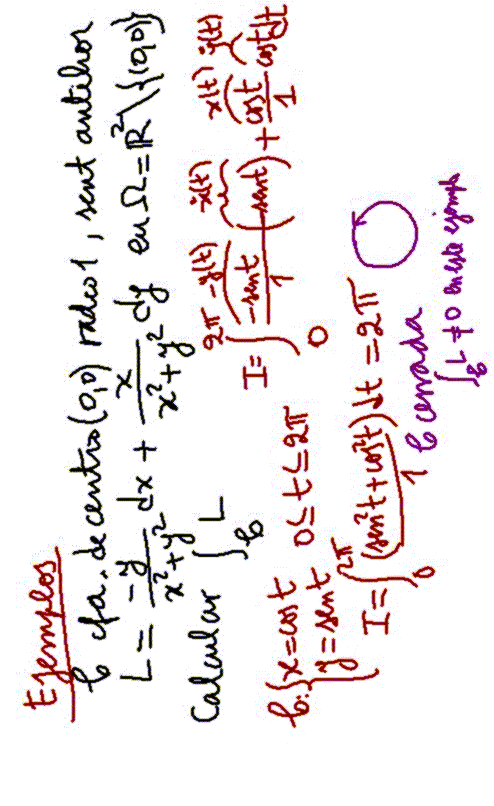 Ejemplos
𝒞 cfa. de centro (0,0) radio 1, sent antihor
L = -y/(x²+y²) dx + x/(x²+y²) dy en Ω = ℝ² \ {(0,0)}
Calcular ∫_𝒞 L
𝒞: { x = cos t
y = sen t 0 ≤ t ≤ 2π
-y(t) ẋ(t) x(t) ẏ(t)
I = ∫₀^{2π} -sen t/1 (-sen t) + cos t/1 cos t dt
I = ∫₀^{2π} (sen²t + cos²t)/1 dt = 2π
𝒞 cerrada
∫_𝒞 L ≠ 0 en este ejemplo